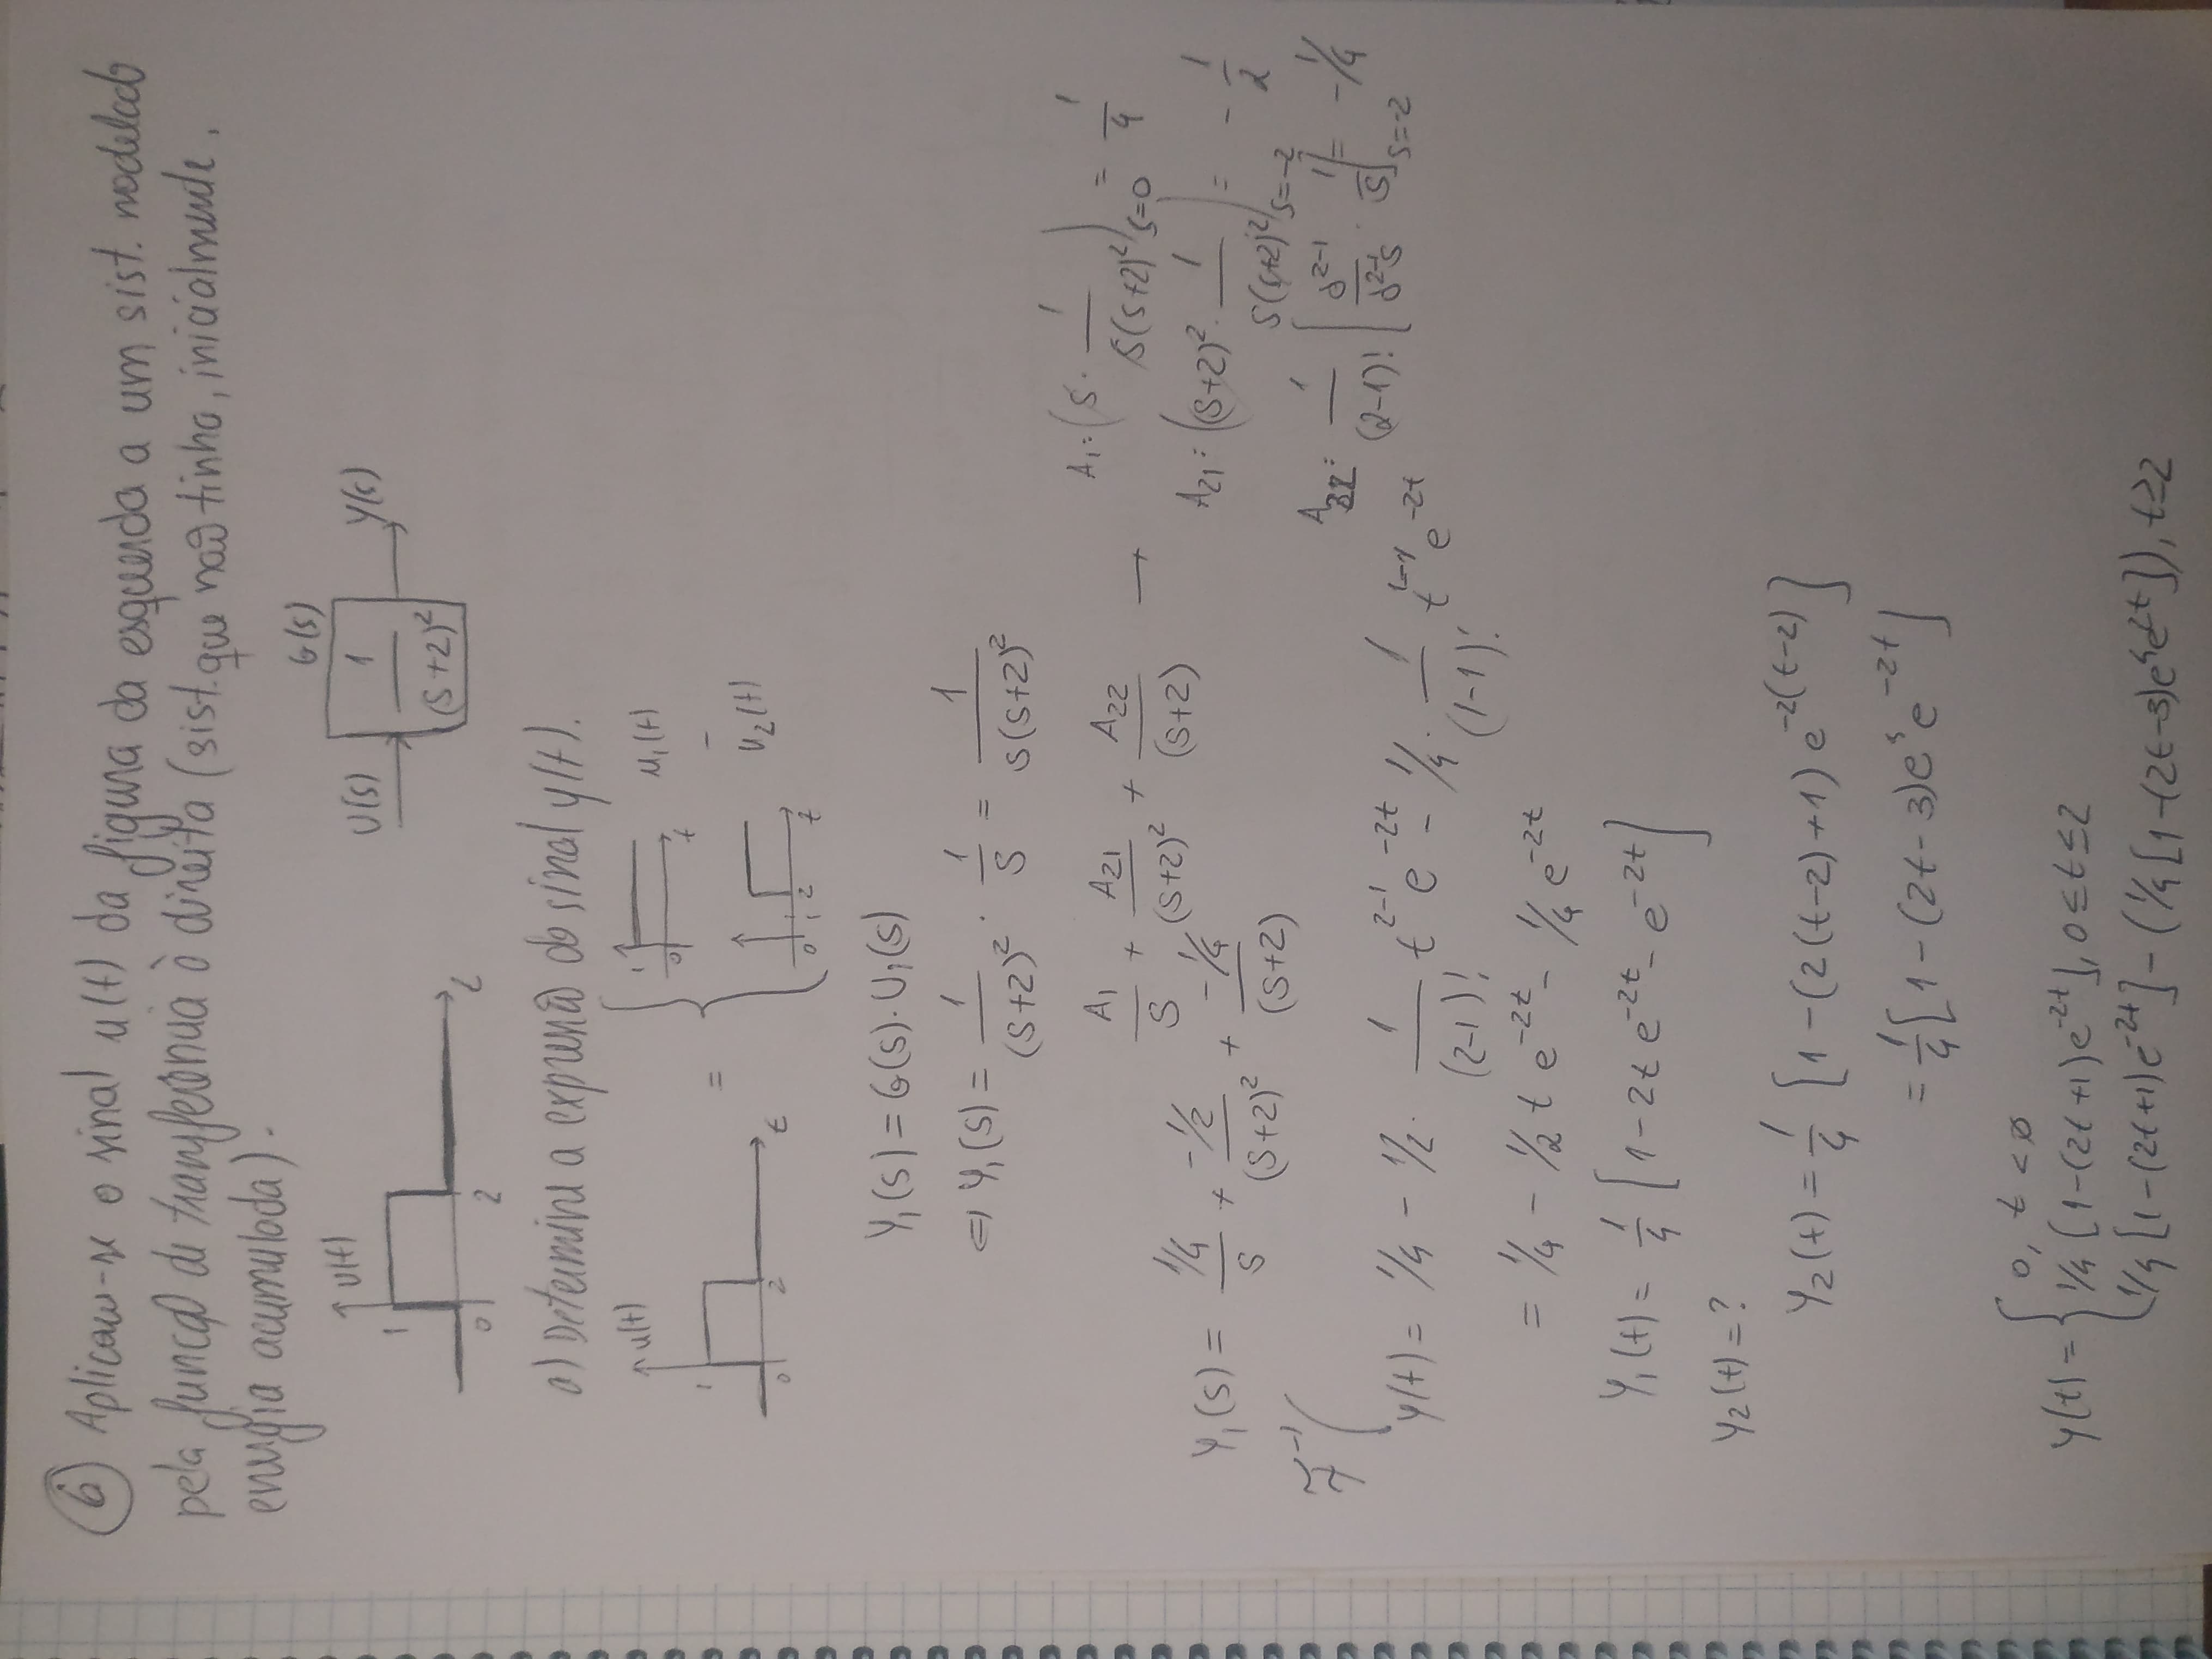 6 Aplicou-se o sinal u(t) da figura da esquerda a um sist. modelado
pela função de transferência à direita (sist. que não tinha, inicialmente,
energia acumulada).
u(t)
1
0 2 t
G(s)
U(s) 1/(s+2)² Y(s)
a) Determine a expressão do sinal y(t).
u(t)
1
0 2 t
=
1 0 t u₁(t)
-
0 1 2 t u₂(t)
Y₁(s) = G(s)·U₁(s)
⇔ Y₁(s) = 1/(s+2)² · 1/s = 1/(s(s+2)²)
A₁/s + A₂₁/(s+2)² + A₂₂/(s+2) →
A₁ = (s · 1/(s(s+2)²))s=0 = 1/4
A₂₁ = ((s+2)² · 1/(s(s+2)²))s=-2 = -1/2
A₂₂ = 1/(2-1)! [d²⁻¹/d²⁻¹s · 1/s]s=-2 = -1/4
Y₁(s) = 1/4/s + -1/2/(s+2)² + -1/4/(s+2)
y(t) = 1/4 - 1/2 · 1/(2-1)! t²⁻¹ e^-2t - 1/4 · 1/(1-1)! t¹⁻¹ e^-2t
= 1/4 - 1/2 t e^-2t - 1/4 e^-2t
Y₁(t) = 1/4 [1 - 2t e^-2t - e^-2t]
Y₂(t) = ?
Y₂(t) = 1/4 [1 - (2(t-2)+1) e^-2(t-2)]
= 1/4 [1 - (2t-3)e⁴e^-2t]
y(t) = { 0, t < ø
1/4 [1-(2t+1)e^-2t], 0 ≤ t ≤ 2
1/4 [1-(2t+1)e^-2t] - (1/4 [1-(2t-3)e⁴e^-2t]), t ≥ 2